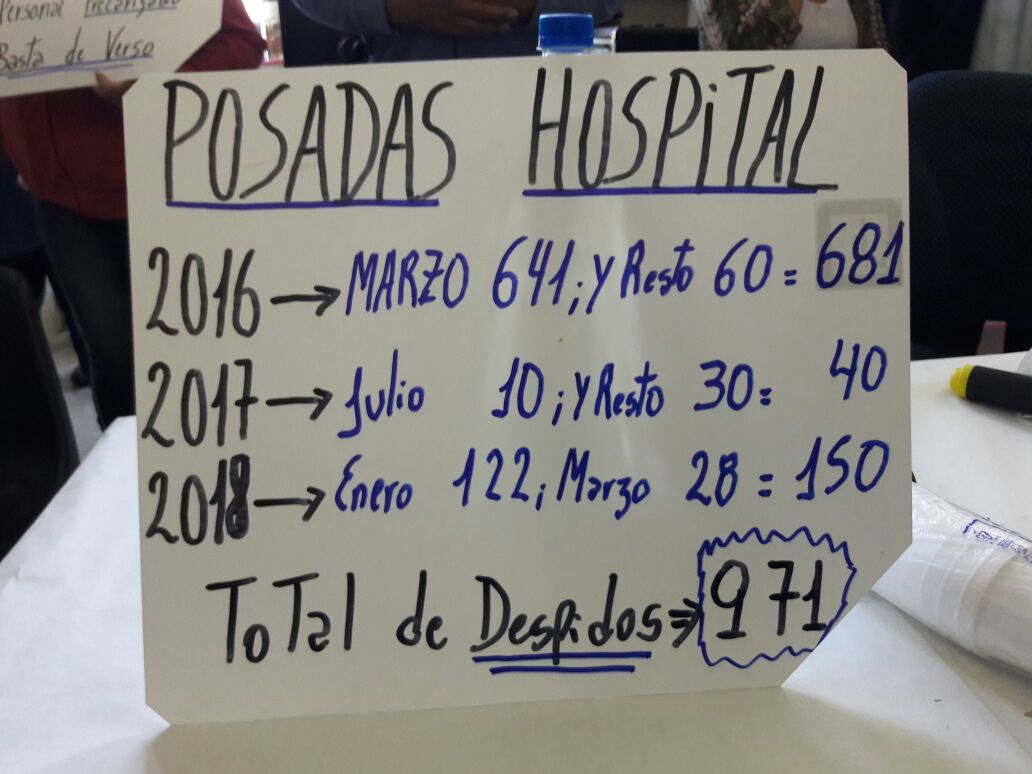 Personal Precarizado
Basta de Verso
POSADAS HOSPiTAL
2016 → MARZO 641; y Resto 60 = 681
2017 → Julio 10; y Resto 30 = 40
2018 → Enero 122; Marzo 28 = 150
ToTal de Despidos ⇒ 971